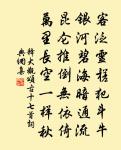 客泛靈槎犯斗牛
銀河碧海暗通流
昆仑推倒無依倚
萬里長空一樣秋
釋大觀頌古十七首詞
典網集